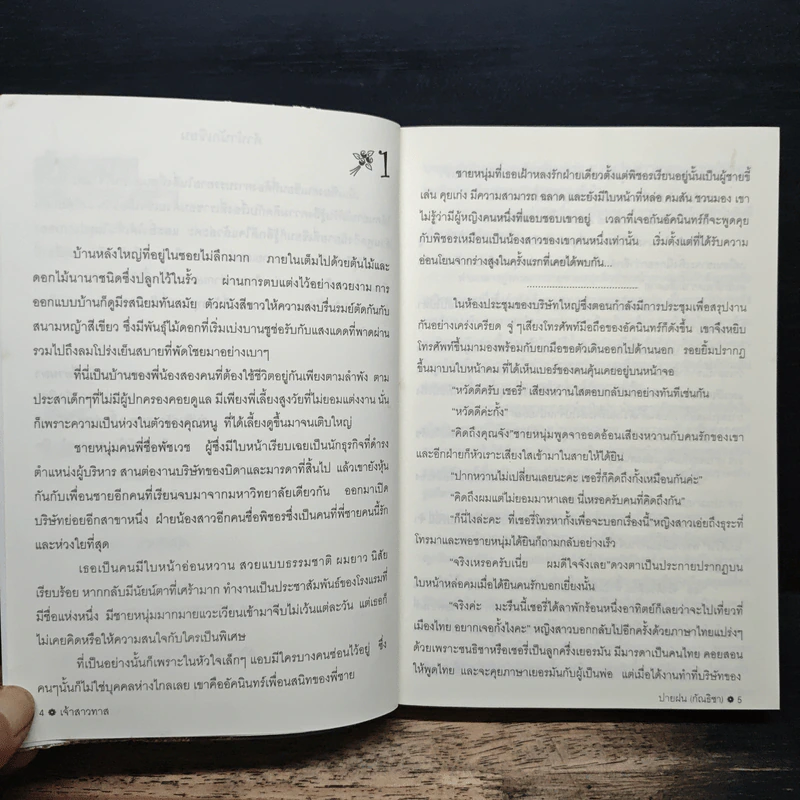 ๑
บ้านหลังใหญ่ที่อยู่ในซอยไม่ลึกมาก ภายในเต็มไปด้วยต้นไม้และ
ดอกไม้นานาชนิดซึ่งปลูกไว้ในรั้ว ผ่านการตบแต่งไว้อย่างสวยงาม การ
ออกแบบบ้านก็ดูมีรสนิยมทันสมัย ตัวผนังสีขาวให้ความสงบรื่นรมย์ตัดกันกับ
สนามหญ้าสีเขียว ซึ่งมีพันธุ์ไม้ดอกที่เริ่มเบ่งบานชูช่อรับกับแสงแดดที่พาดผ่าน
รวมไปถึงลมโปร่งเย็นสบายที่พัดโชยมาอย่างเบาๆ
ที่นี่เป็นบ้านของพี่น้องสองคนที่ต้องใช้ชีวิตอยู่กันเพียงตามลำพัง ตาม
ประสาเด็กๆที่ไม่มีผู้ปกครองคอยดูแล มีเพียงพี่เลี้ยงสูงวัยที่ไม่ยอมแต่งงาน นั่น
ก็เพราะความเป็นห่วงในตัวของคุณหนู ที่ได้เลี้ยงดูขึ้นมาจนเติบใหญ่
ชายหนุ่มคนพี่ชื่อพัชเวช ผู้ซึ่งมีใบหน้าเรียบเฉยเป็นนักธุรกิจที่ดำรง
ตำแหน่งผู้บริหาร สานต่องานบริษัทของบิดาและมารดาที่สิ้นไป แล้วเขายังหุ้น
กันกับเพื่อนชายอีกคนที่เรียนจบมาจากมหาวิทยาลัยเดียวกัน ออกมาเปิด
บริษัทย่อยอีกสาขาหนึ่ง ฝ่ายน้องสาวอีกคนชื่อพิชอรซึ่งเป็นคนที่พี่ชายคนนี้รัก
และห่วงใยที่สุด
เธอเป็นคนมีใบหน้าอ่อนหวาน สวยแบบธรรมชาติ ผมยาว นิสัย
เรียบร้อย หากกลับมีนัยน์ตาที่เศร้ามาก ทำงานเป็นประชาสัมพันธ์ของโรงแรมที่
มีชื่อแห่งหนึ่ง มีชายหนุ่มมากมายแวะเวียนเข้ามาจีบไม่เว้นแต่ละวัน แต่เธอก็
ไม่เคยคิดหรือให้ความสนใจกับใครเป็นพิเศษ
ที่เป็นอย่างนั้นก็เพราะในหัวใจเล็กๆ แอบมีใครบางคนซ่อนไว้อยู่ ซึ่ง
คนๆนั้นก็ไม่ใช่บุคคลห่างไกลเลย เขาคืออัคนินทร์เพื่อนสนิทของพี่ชาย
4 เจ้าสาวทาส
ชายหนุ่มที่เธอเฝ้าหลงรักฝ่ายเดียวตั้งแต่พิชอรเรียนอยู่นั้นเป็นผู้ชายขี้
เล่น คุยเก่ง มีความสามารถ ฉลาด และยังมีใบหน้าที่หล่อ คมสัน ชวนมอง เขา
ไม่รู้ว่ามีผู้หญิงคนหนึ่งที่แอบชอบเขาอยู่ เวลาที่เจอกันอัคนินทร์ก็จะพูดคุย
กับพิชอรเหมือนเป็นน้องสาวของเขาคนหนึ่งเท่านั้น เริ่มตั้งแต่ที่ได้รับความ
อ่อนโยนจากร่างสูงในครั้งแรกที่เคยได้พบกัน...
ในห้องประชุมของบริษัทใหญ่ซึ่งตอนกำลังมีการประชุมเพื่อสรุปงาน
กันอย่างเคร่งเครียด จู่ ๆเสียงโทรศัพท์มือถือของอัคนินทร์ก็ดังขึ้น เขาจึงหยิบ
โทรศัพท์ขึ้นมามองพร้อมกับยกมือขอตัวเดินออกไปด้านนอก รอยยิ้มปรากฏ
ขึ้นมาบนใบหน้าคม ที่ได้เห็นเบอร์ของคนคุ้นเคยอยู่บนหน้าจอ
“หวัดดีครับ เชอรี่” เสียงหวานใสตอบกลับมาอย่างทันทีเช่นกัน
“หวัดดีค่ะกั้ง”
“คิดถึงคุณจัง”ชายหนุ่มพูดจาออดอ้อนเสียงหวานกับคนรักของเขา
และอีกฝ่ายก็หัวเราะเสียงใสเข้ามาในสายให้ได้ยิน
“ปากหวานไม่เปลี่ยนเลยนะคะ เชอรี่ก็คิดถึงกั้งเหมือนกันค่ะ”
“คิดถึงผมแต่ไม่ยอมมาหาเลย นี่เหรอครับคนที่คิดถึงกัน”
“ก็นี่ไงล่ะคะ ที่เชอรี่โทรหากั้งเพื่อจะบอกเรื่องนี้”หญิงสาวเอ่ยถึงธุระที่
โทรมาและพอชายหนุ่มได้ยินก็ถามกลับอย่างเร็ว
“จริงเหรอครับเนี่ย ผมดีใจจังเลย”ดวงตาเป็นประกายปรากฏบน
ใบหน้าหล่อคมเมื่อได้ยินคนรักบอกเยี่ยงนั้น
“จริงค่ะ มะรืนนี้เชอรี่ได้ลาพักร้อนหนึ่งอาทิตย์ก็เลยว่าจะไปเที่ยวที่
เมืองไทย อยากเจอกั้งไงคะ” หญิงสาวบอกกลับไปอีกครั้งด้วยภาษาไทยแปร่งๆ
ด้วยเพราะชนธิชาหรือเชอรี่เป็นลูกครึ่งเยอรมัน มีมารดาเป็นคนไทย คอยสอน
ให้พูดไทย และจะคุยภาษาเยอรมันกับผู้เป็นพ่อ แต่เมื่อได้งานทำที่บริษัทของ
ปายฝน (กัณธิชา) 5